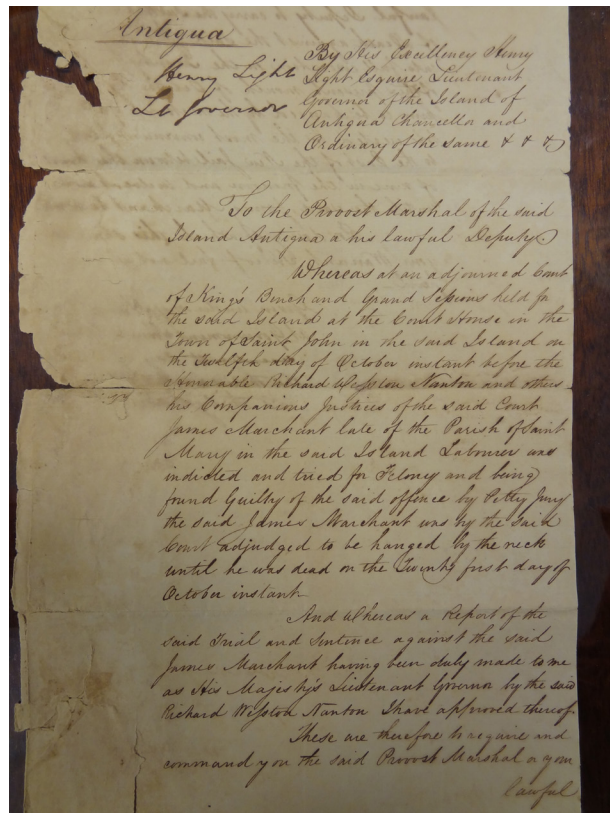 Antigua
Henry Light
Lt Governor
By His Excellency Henry
Light Esquire Lieutenant
Governor of the Island of
Antigua Chancellor and
Ordinary of the same & & &
To the Provost Marshal of the said
Island Antigua or his lawful Deputy.
Whereas at an adjourned Court
of King's Bench and Grand Sessions held for
the said Island at the Court House in the
Town of Saint John in the said Island on
the Twelfth day of October instant before the
Honorable Richard Weston Nanton and others
his Companions Justices of the said Court
James Marchant late of the Parish of Saint
Mary in the said Island Labourer was
indicted and tried for Felony and being
found Guilty of the said offence by Petty Jury
the said James Marchant was by the said
Court adjudged to be hanged by the neck
until he was dead on the Twenty first day of
October instant.
And Whereas a Report of the
said Trial and Sentence against the said
James Marchant having been duly made to me
as His Majesty's Lieutenant Governor by the said
Richard Weston Nanton I have approved thereof
These are therefore to require and
command you the said Provost Marshal or your
lawful